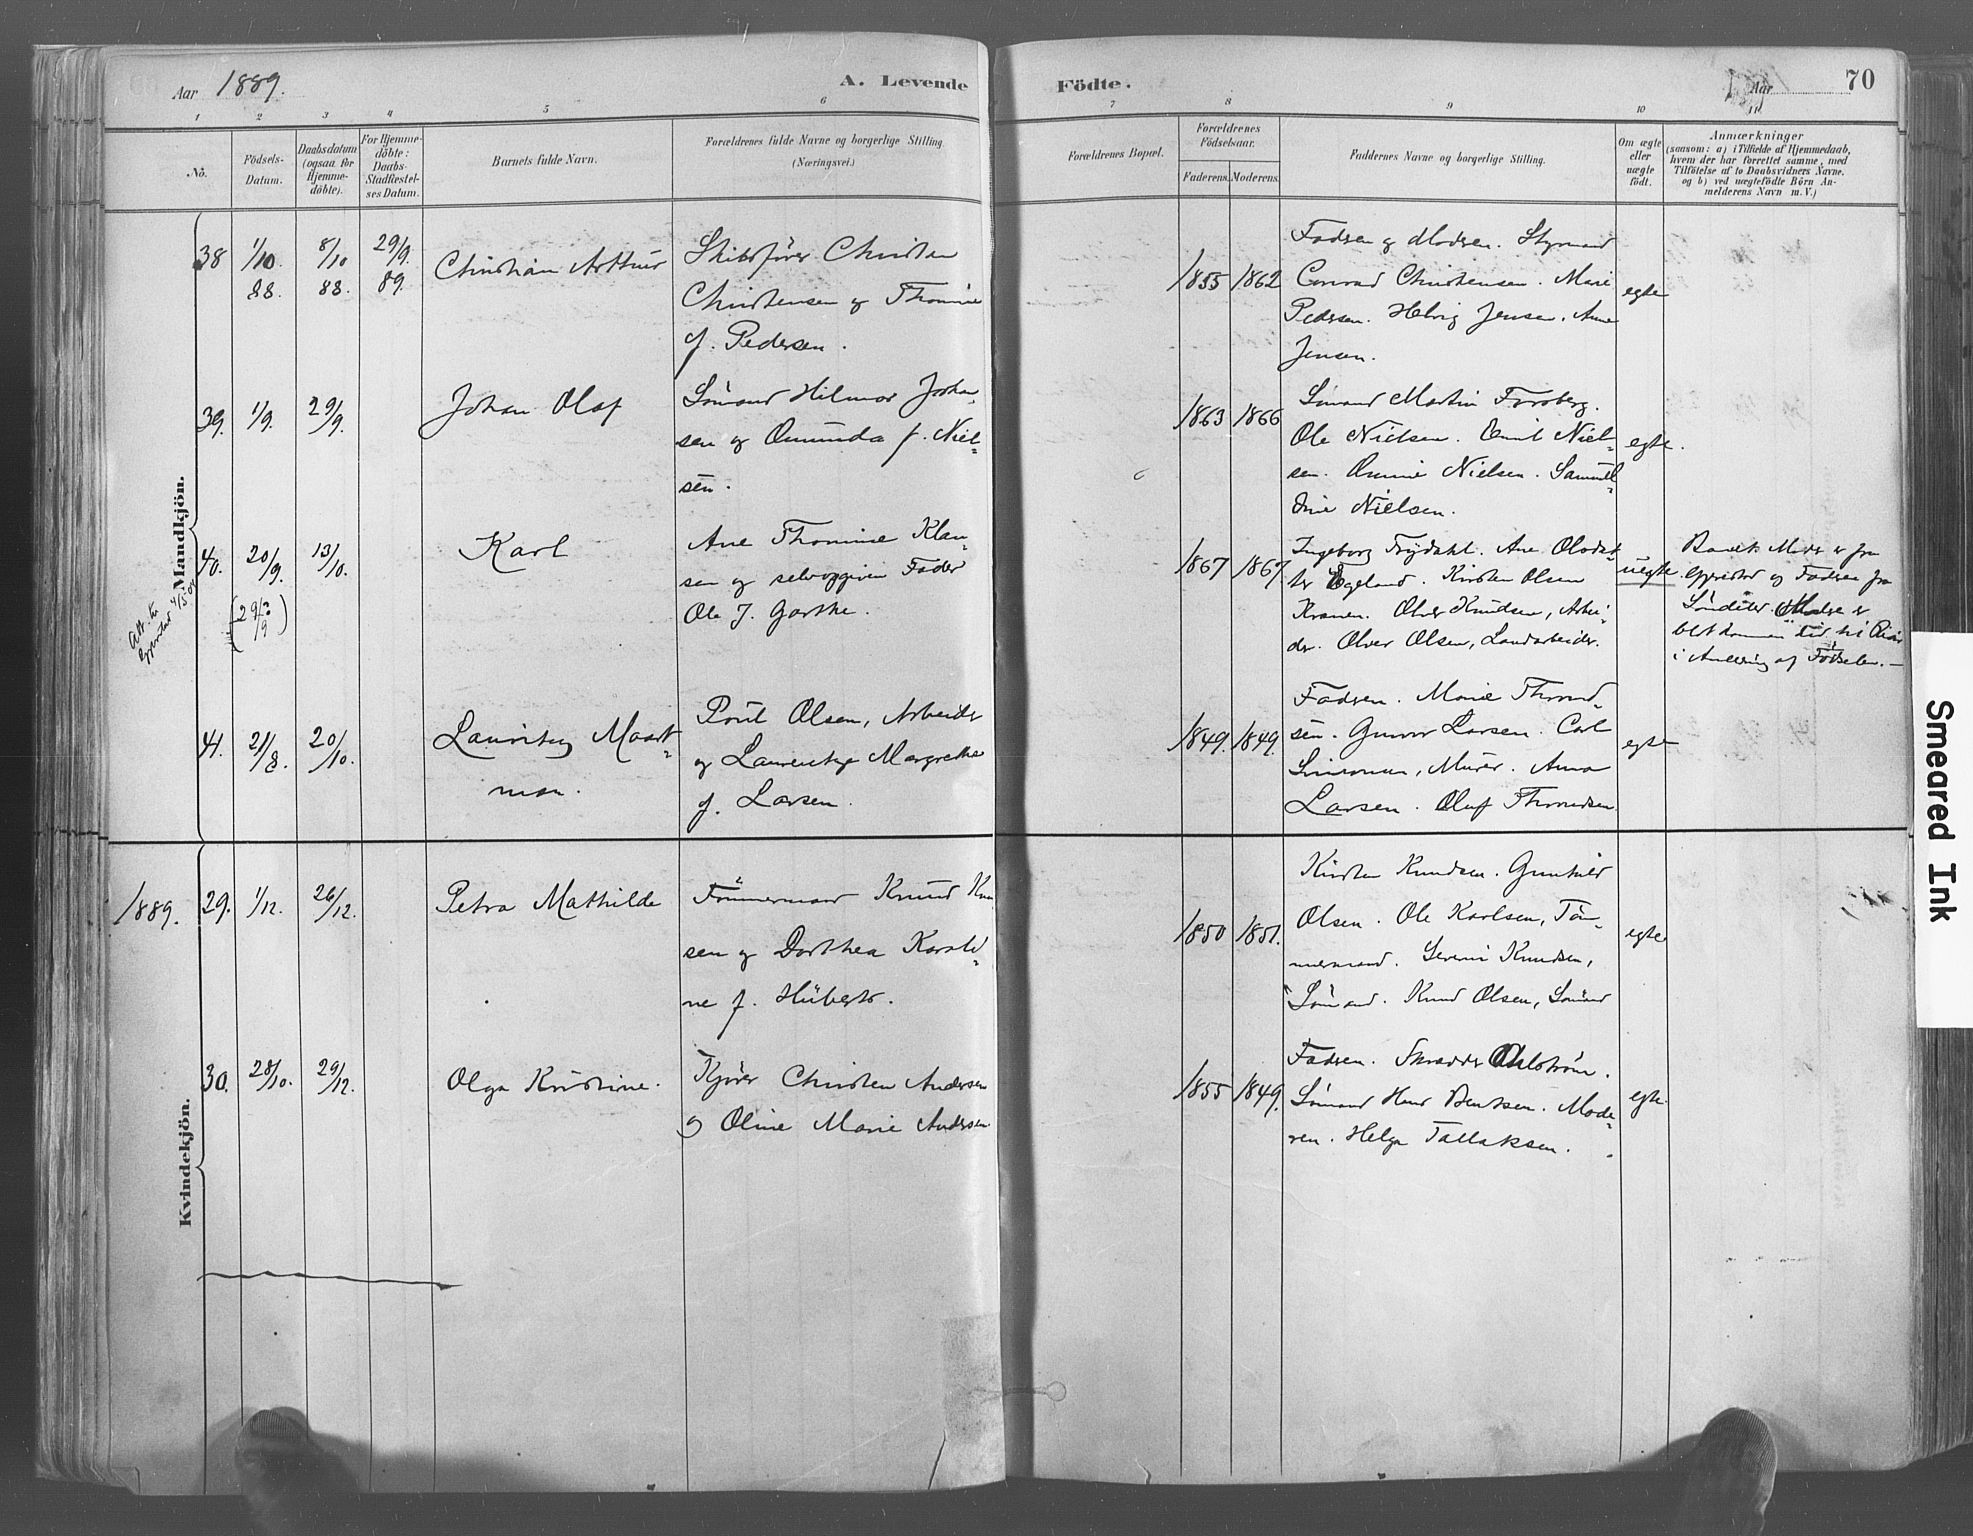 Aar 1889.
A. Levende
Födte.
Aar
70
1 2 3 4 5 6 7 8 9 10 11
No.
Födsels-
Datum.
Daabsdatum
(ogsaa for
Hjemme-
döbte).
For Hjemme-
döbte:
Daabs-
Stadfæstel-
ses Datum.
Barnets fulde Navn.
Forældrenes fulde Navne og borgerlige Stilling
(Næringsvei.)
Forældrenes Bopæl.
Forældrenes
Födselsaar.
Faderens. Moderens.
Faddernes Navne og borgerlige Stilling.
Om ægte
eller
uægte
födt.
Anmærkninger
(saasom: a) i Tilfælde af Hjemmedaab,
hvem der har forrettet samme, med
Tilföielse af to Daabsvidners Navne,
og b) ved uægtefödte Börn An-
melderens Navn m. V.)
Mandkjön.
38
1/10
88.
8/10
88.
29/9.
89.
Christian Arthur
Skibsfører Christen
Christensen og Thomine
f. Pedersen.
1855 1862
Fadren og Modren. Styrmand
Conrad Christensen. Marie
Pedersen. Helvig Jensen. Anne
Jensen.
egte
39.
1/9.
29/9.
Johan Olaf
Sömand Hilmar Johan
sen og Amunda f. Niel-
sen.
1863 1866
Sömand Martin Forsberg.
Ole Nielsen. Emil Niel-
sen. Nielsen. Samuel-
ine Nielsen.
egte.
40.
20/9.
(29/9?)
13/10.
Karl
Ane Thomine Klau-
sen og selvopgiven Fader
Ole J. Garthe.
1867 1867
Ingeborg Frydahl. Ane Olsdat-
ter Egeland. Kirsten Olsen
Kranen. Olver Knudsen, Arbei-
der. Olver Olsen, Landarbeider.
uegte
Barnets Moder er fra
Gjerestad og Fadren fra
Söndeled. Modre er
blot kommen ind til Risör
i Anledning af Fødselen.—
Att. til
Gjerestad 4/5 04
41.
21/8.
20/10.
Lauritz Mart-
man.
Poul Olsen, Arbeider
og Laurentze Margrethe
f. Larsen.
1849. 1849.
Fadren. Marie Thomd-
sen. Gunvor Larsen. Carl
Simonsen, Murer. Anna
Larsen. Oluf Thomdsen.
egte
Kvindekjön.
1889.
29.
1/12.
26/12.
Petra Mathilde
Tömmermand Knud Knu
sen og Dorthea Karoli-
ne f. Huberts.
1850 1851.
Kirsten Knudsen. Gunhild
Olsen. Ole Karlsen, Töm-
mermand. Severin Knudsen,
Sömand. Knud Olsen, Sömand
egte
30.
28/10.
29/12.
Olga Kristine.
Kjörer Christen Andersen
og Oline Marie Andersen
1855 1849.
Fadren. Skrædder Dahlström.
Sömand Hans Bentsen. Mode-
ren. Helga Tallaksen.
egte.
Smeared Ink